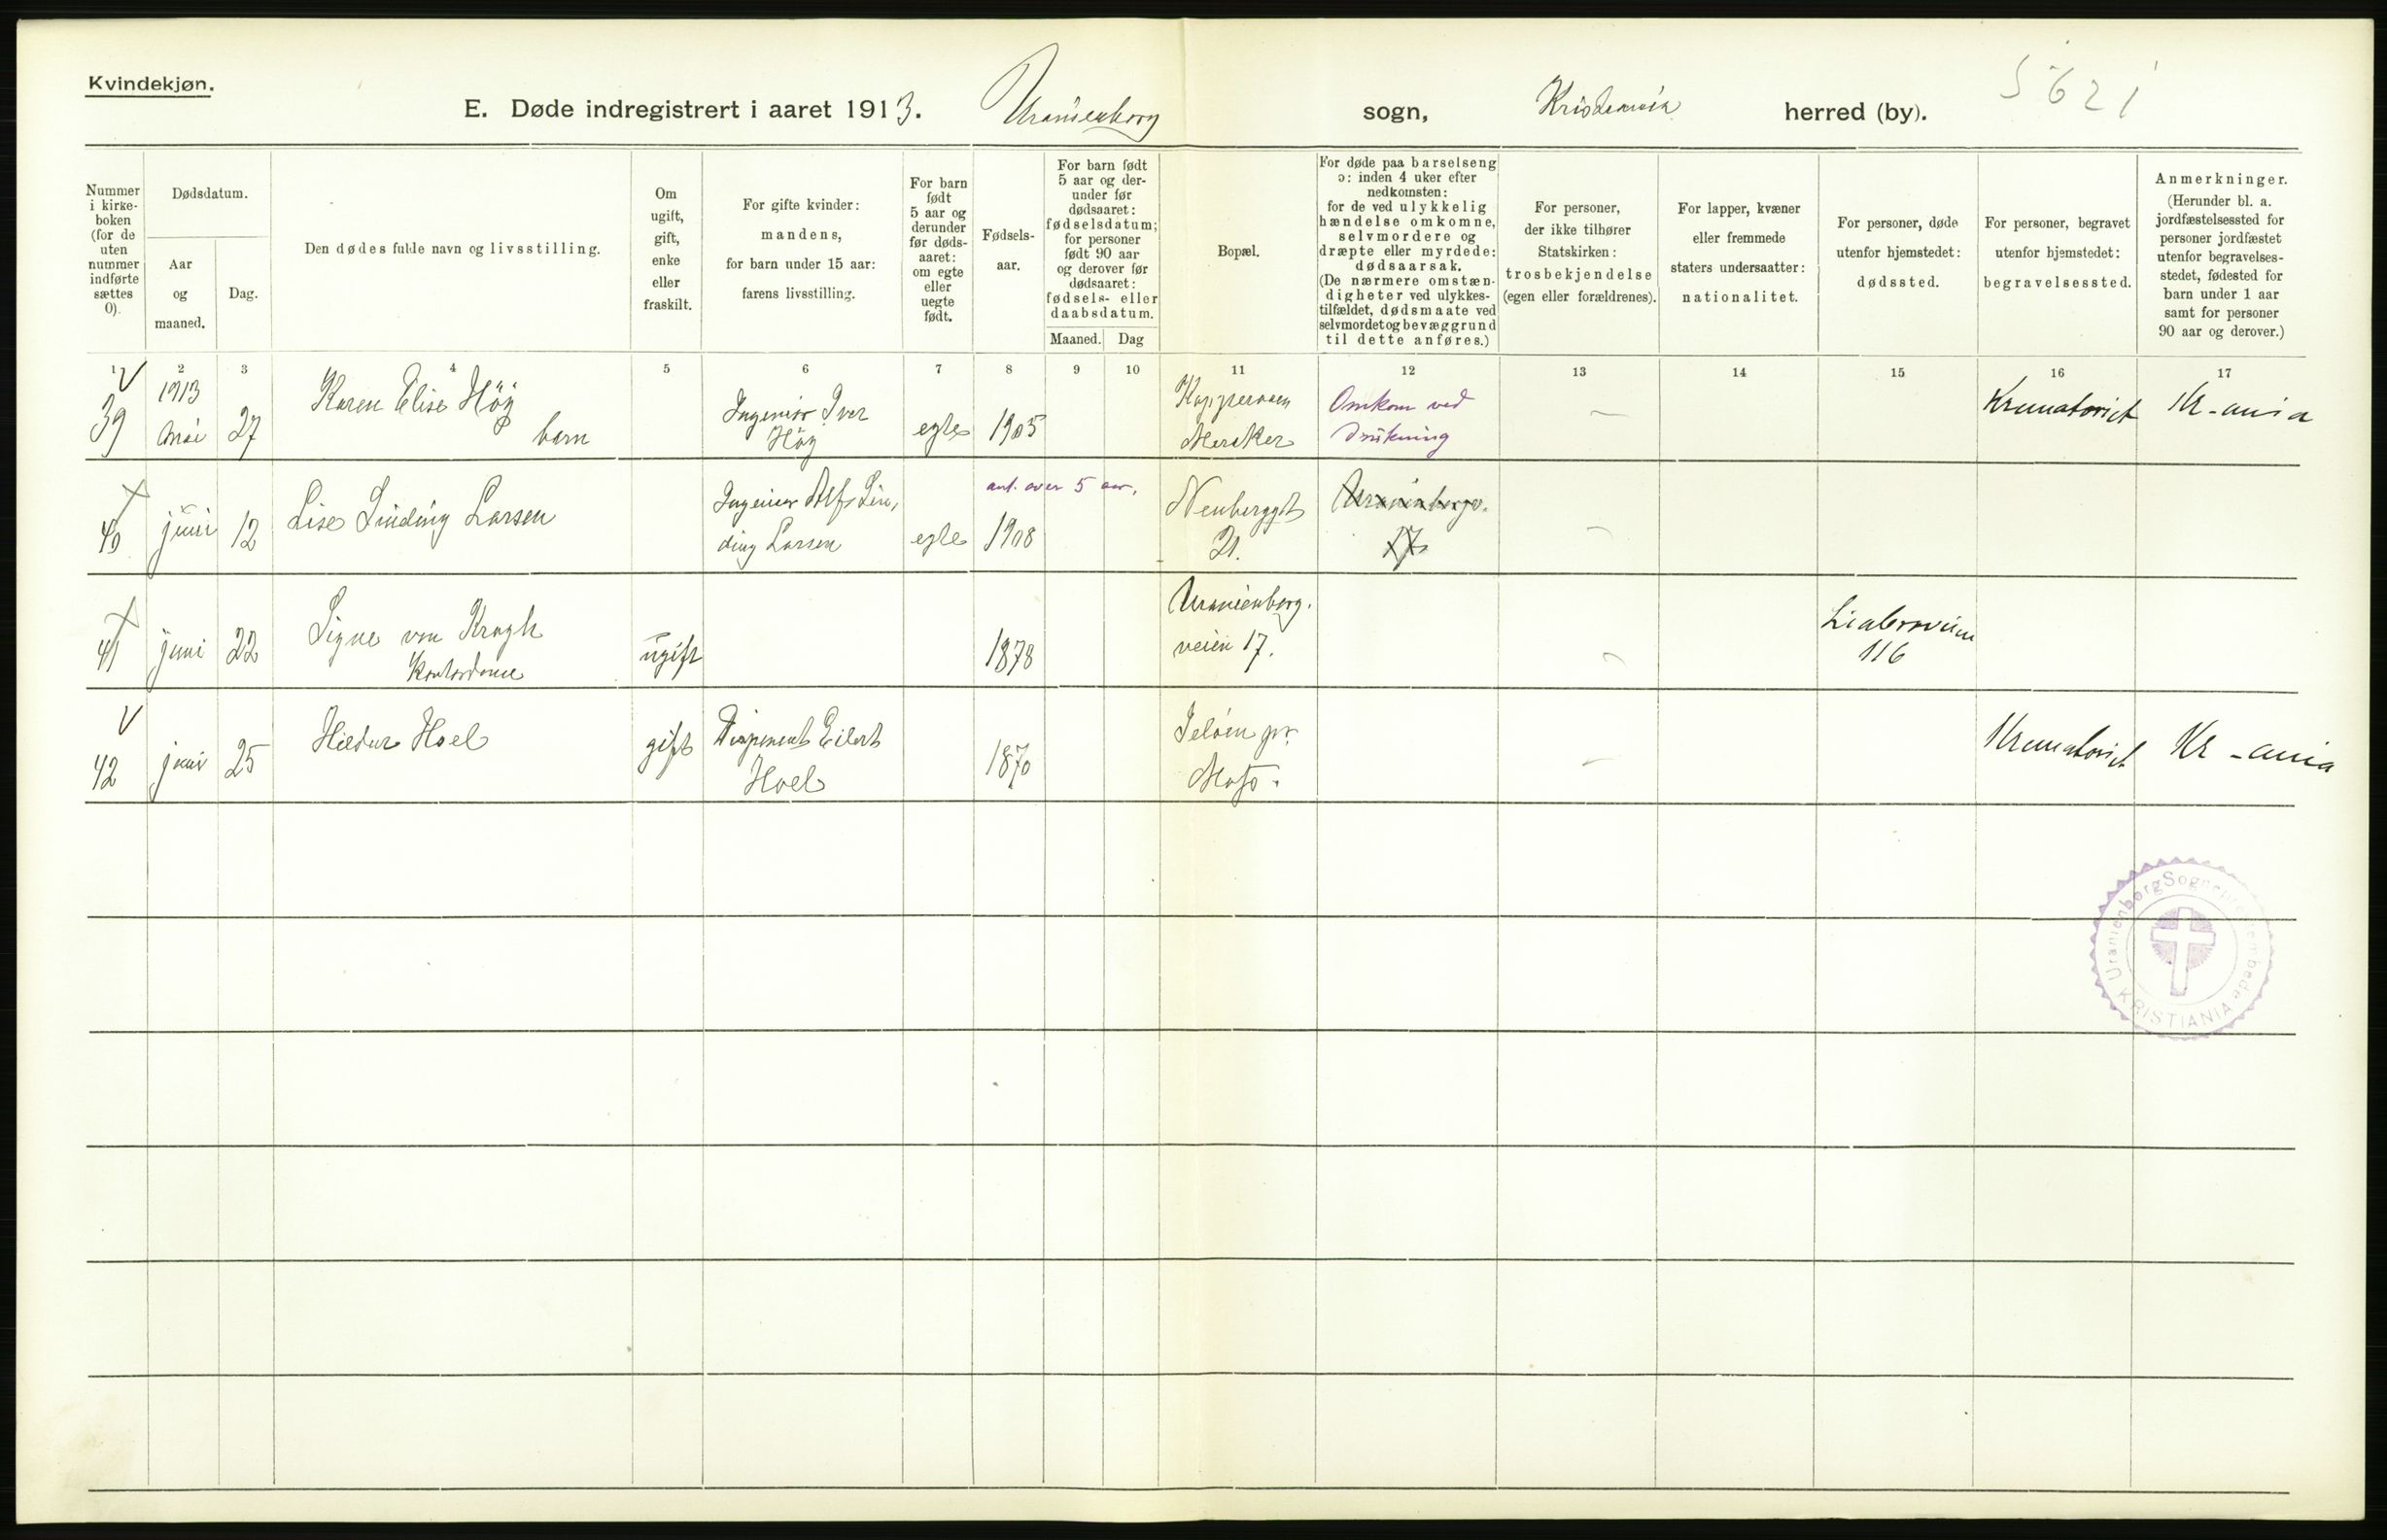 Kvindekjøn.
E. Døde indregistrert i aaret 1913. Uranienborg sogn, Kristiania herred (by). 5621
Nummer i kirke-boken (for de uten nummer indførte sættes 0).
Dødsdatum.
Aar og maaned.
Dag.
Den dødes fulde navn og livsstilling.
Om ugift, gift, enke eller fraskilt.
For gifte kvinder: mandens, for barn under 15 aar: farens livsstilling.
For barn født 5 aar og derunder før døds-aaret: om egte eller uegte født.
Fødsels-aar.
For barn født 5 aar og der-under før dødsaaret: fødselsdatum; for personer født 90 aar og derover før dødsaaret: fødsels- eller daabsdatum.
Maaned. Dag
Bopæl.
For døde paa barselseng ɔ: inden 4 uker efter nedkomsten: for de ved ulykkelig hændelse omkomne, selvmordere og dræpte eller myrdede: dødsaarsak. (De nærmere omstæn-digheter ved ulykkes-tilfældet, dødsmaate ved selvmordet og bevæggrund til dette anføres.)
For personer, der ikke tilhører Statskirken: trosbekjendelse (egen eller forældrenes).
For lapper, kvæner eller fremmede staters undersaatter: nationalitet.
For personer, døde utenfor hjemstedet: dødssted.
For personer, begravet utenfor hjemstedet: begravelsessted.
Anmerkninger. (Herunder bl. a. jordfæstelsessted for personer jordfæstet utenfor begravelses-stedet, fødested for barn under 1 aar samt for personer 90 aar og derover.)
1 2 3 4 5 6 7 8 9 10 11 12 13 14 15 16 17
39 1913 Mai 27 Karen Elise Höy barn Ingeniør Iver Höy egte 1905 Meraker Omkom ved drukning Krematoriet Kr-ania
40 juni 12 Lise Sinding Larsen Ingeniør Alf Sin, ding Larsen egte ant. over 5 aar. 1908 Neuberggt 21. Uranienborgv. 17
41 juni 22 Signe von Krogh Kontordame ugift 1878 Uranienborg. veien 17. 116
42 juni 25 Hildur Hoel gift Disponent Eilert Hoel 1870 Jeløen pr. Moss. Krematoriet Kr-ania
Uranienborg Sogneprestembede
KRISTIANIA